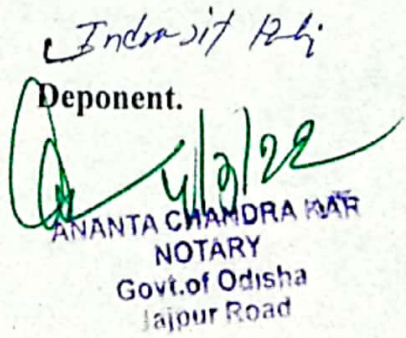 Indrajit
Deponent.
4/3/22
ANANTA CHANDRA KAR
NOTARY
Govt.of Odisha
Jajpur Road